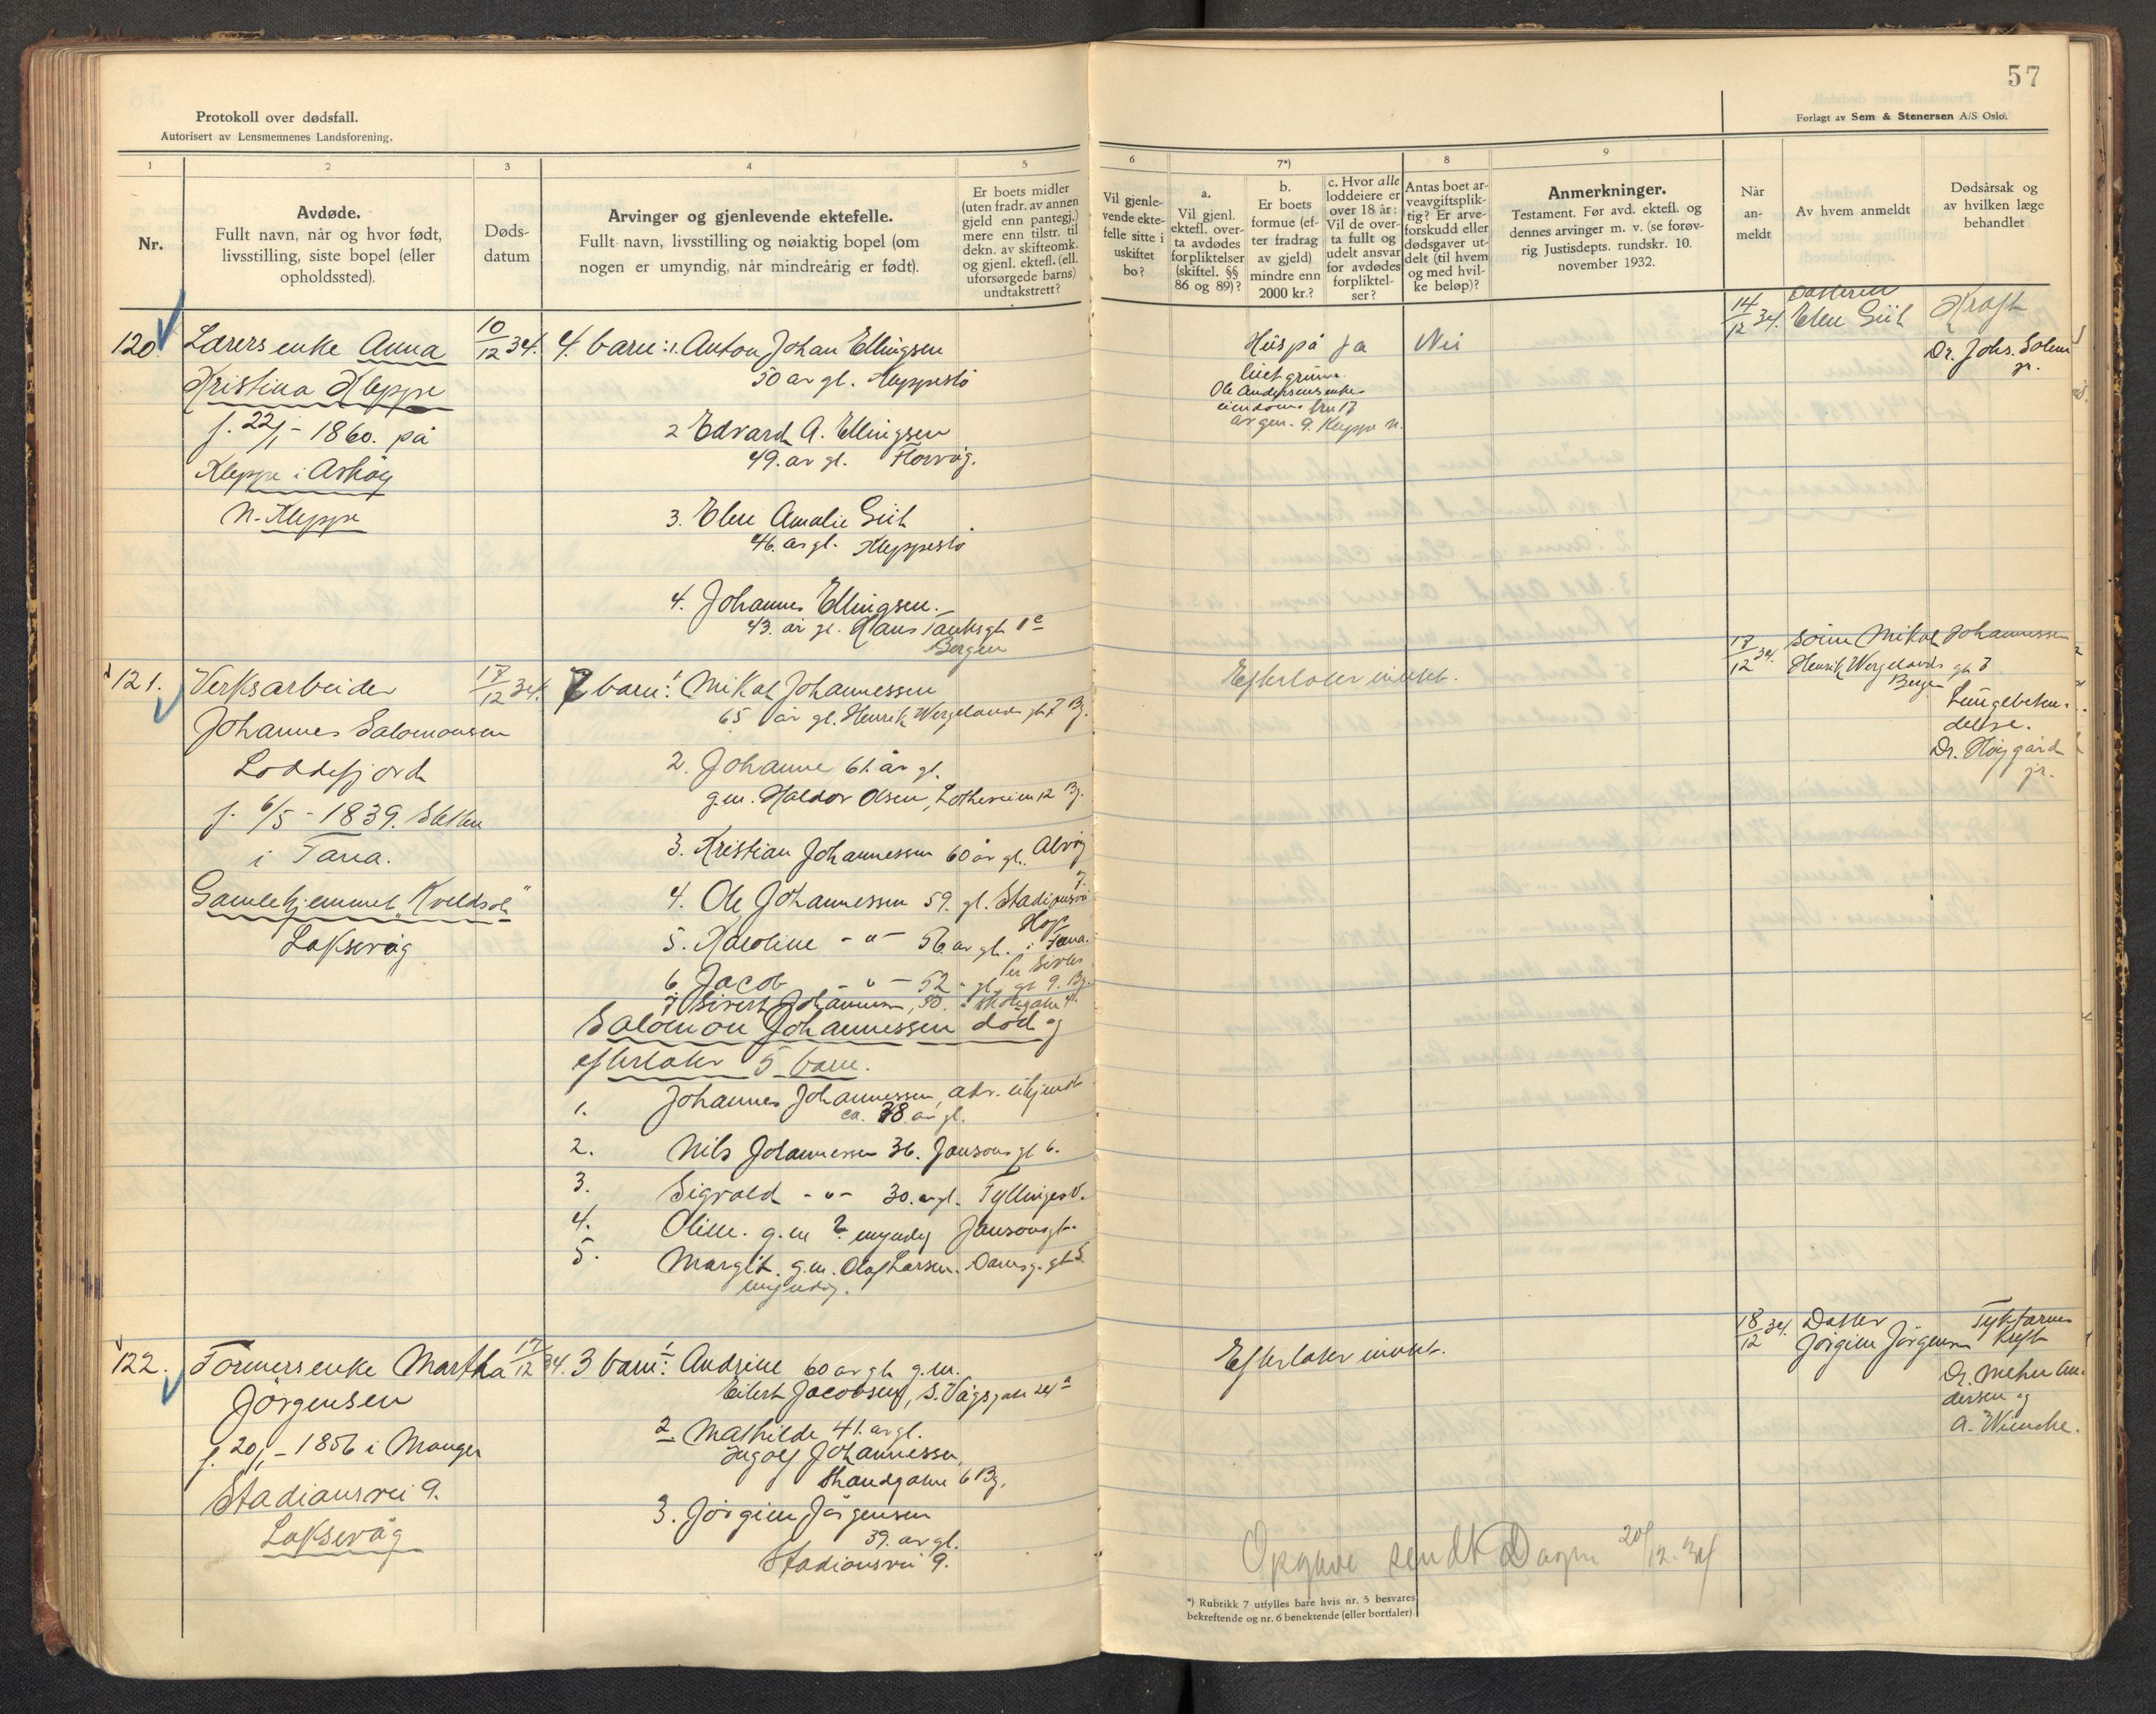 57
Protokoll over dødsfall.
Autorisert av Lensmennenes Landsforening.
Forlagt av Sem & Stenersen A/S Oslo.
1 2 3 4 5 6 7*) 8 9
Nr.
Avdøde.
Fullt navn, når og hvor født,
livsstilling, siste bopel (eller
opholdssted).
Døds-
datum
Arvinger og gjenlevende ektefelle.
Fullt navn, livsstilling og nøiaktig bopel (om
nogen er umyndig, når mindreårig er født).
Er boets midler
(uten fradr. av annen
gjeld enn pantegj.)
mere enn tilstr. til
dekn. av skifteomk.
og gjenl. ektef. (ell.
uforsørgede barns)
undtakstrett?
Vil gjenle-
vende ekte-
felle sitte i
uskiftet
bo?
a.
Vil gjenl.
ektefl. over-
ta avdødes
forpliktelser
(skiftel. §§
86 og 89)?
b.
Er boets
formue (ef-
ter fradrag
av gjeld)
mindre enn
2000 kr.?
c. Hvor alle
loddeiere er
over 18 år:
Vil de over-
ta fullt og
udelt ansvar
for avdødes
forpliktel-
ser?
Antas boet ar-
veavgiftsplik-
tig? Er arve-
forskudd eller
dødsgaver ut-
delt (til hvem
og med hvil-
ke beløp)?
Anmerkninger.
Testament. Før avd. ektefl. og
dennes arvinger m. v. (se forøv-
rig Justisdepts. rundskr. 10.
november 1932.
Når
an-
meldt
Av hvem anmeldt
Dødsårsak og
av hvilken læge
behandlet
120.
Lærers enke Anna
Kristina Kleppe
f. 22/1 - 1860. på
Kleppe i Askøy
N. Kleppe
10/12 34.
4. barn: 1. Anton Johan Ellingsen
50 år gl. Kleppestø
2 Edvard A. Ellingsen
49. år gl. Florvåg.
3. Elen Amalie
46. år gl. Kleppestø
4. Johannes Ellingsen.
43. år gl. Hans Tanksgt 1c
Bergen
Hus på
Ole Andersens enke-
eiendom bru 17
av gnr. 9. Kleppe n.
ja
Nei
14/12 34.
Datteren
Elen
Kreft
Dr. Johs. Solem
jr.
121.
Verksarbeider
Johannes Salomonsen
Loddefjord
f. 6/5 - 1839.
i Fana.
Gamlehjemmet "Kveldsol"
Laksevåg
17/12 34.
7 barn: 1 Mikal Johannessen
65 år gl. Henrik Wergelands gt 7 Bg.
2. Johanne 61. år gl.
g.m. Haldor Olsen, Lotheveien 12 Bg.
3. Kristian Johannessen 60 år gl. Alvøy
4. Ole Johannessen 59. gl. Stadionsvei 7.
5. Karoline - " - 56 år gl. Hop i Fana.
6. Jacob - " - 52 " gl. gt 9. Bg.
7 Sivert Johannesen, 50. "
Salomon Johannessen død og
efterlater 5 barn.
1. Johannes Johannessen, adr. ukjendt
ca. 38 år gl.
2. Nils Johannessen 36. Jansons gt 6.
3. Sigvald - " - 30. år gl. Tyllingsv.
4. Oline. g.m ? myndig Jansonsgt.
5. Margit. g.m. Olaf Larsen. Damsg. gt 5.
myndig.
Efterlater intet.
17/12 34.
Sönn Mikal Johannessen
Henrik Wergelands gt 7
Bergen
Lungebeten-
delse.
Dr. Höygård
jr.
122.
Formers enke Martha
Jörgensen
f. 20/1 - 1856 i Manger
Stadionsvei 9.
Laksevåg
17/12 34.
3 barn: 1. Andrine 60 år gl. g.m.
Eilert Jacobsen, S. Vågsgate 24a
2 Mathilde 41. år gl.
Ingolf Johannessen,
Strandgaten 6 Bg.
3. Jörgine Jörgensen
39. år gl.
Stadionsvei 9.
Efterlater intet.
18/12 34.
Datter
Jörgine Jörgensen
Tyktarms
kreft
Dr. Meyer An-
dersen og
A. Wiencke.
Opgave sendt Dagen 20/12.34
*) Rubrikk 7 utfylles bare hvis nr. 5 besvares
bekreftende og nr. 6 benektende (eller bortfaler)